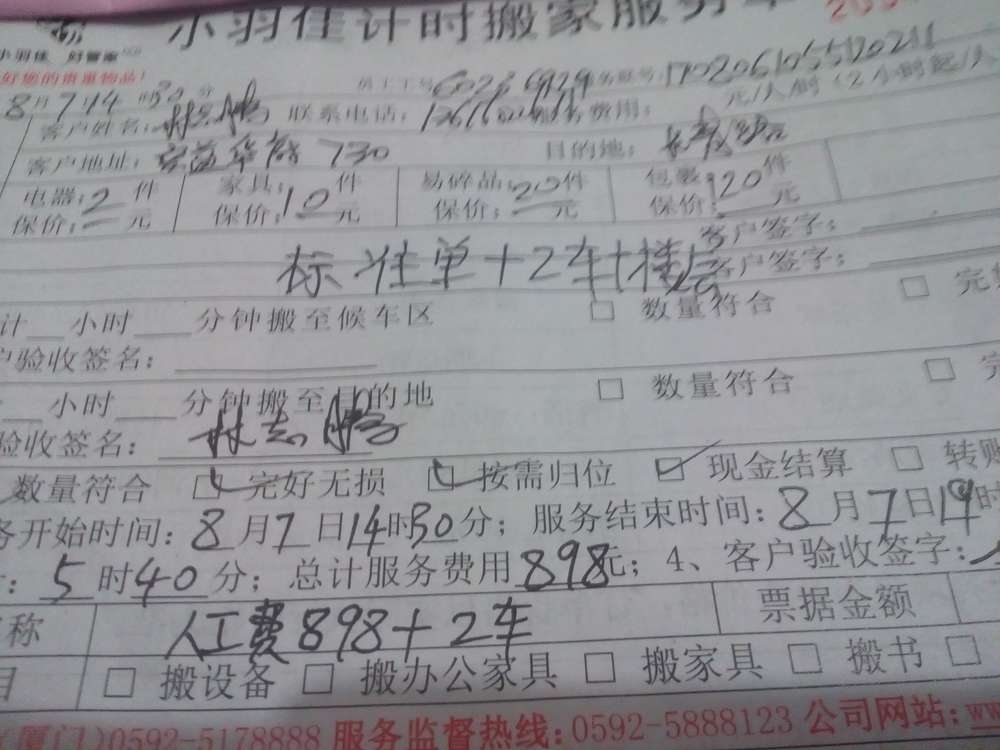 小羽佳计时搬家服务
小羽佳 好管家
好您的贵重物品！
员工工号: 务账号: 元/人/时（2小时起/人
8月7 14时30分
客户姓名: 联系电话: 费用:
客户地址: 730 目的地:
电器: 2 件 家具: 10 件 易碎品: 20 件 包裹: 120 件
保价: 元 保价: 元 保价: 元 保价: 元
客户签字:
标准单+2车+楼层 客户签字:
计 小时 分钟搬至候车区 □ 数量符合 □ 完
户验收签名:
小时 分钟搬至目的地 □ 数量符合 □ 完
验收签名: 林志鹏
数量符合 ☑ 完好无损 ☑ 按需归位 ☑ 现金结算 □ 转账
务开始时间: 8月7日14时30分; 服务结束时间: 8月7日19时
: 5时40分; 总计服务费用898元; 4、客户验收签字:
称 人工费898+2车 票据金额
目 □ 搬设备 □ 搬办公家具 □ 搬家具 □ 搬书 □
(厦门)0592-5178888 服务监督热线: 0592-5888123 公司网站: